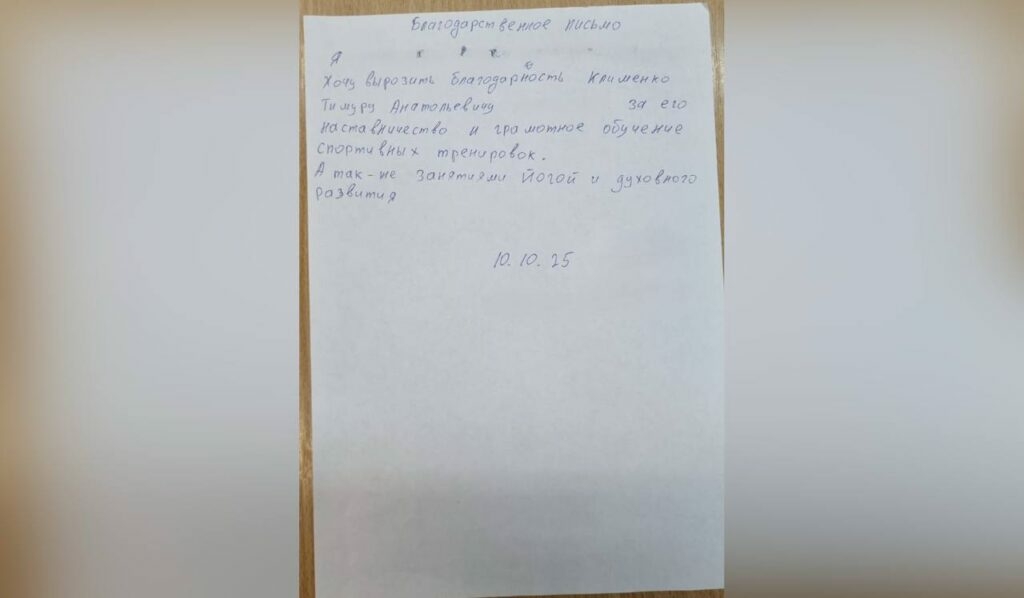 Благодарственное письмо
Я
Хочу вырозить благодарность Клименко
Тимуру Анатольевичу за его
наставничество и грамотное обучение
спортивных тренировок.
А так-же занятиями Йогой и духовного
развития
10.10.25